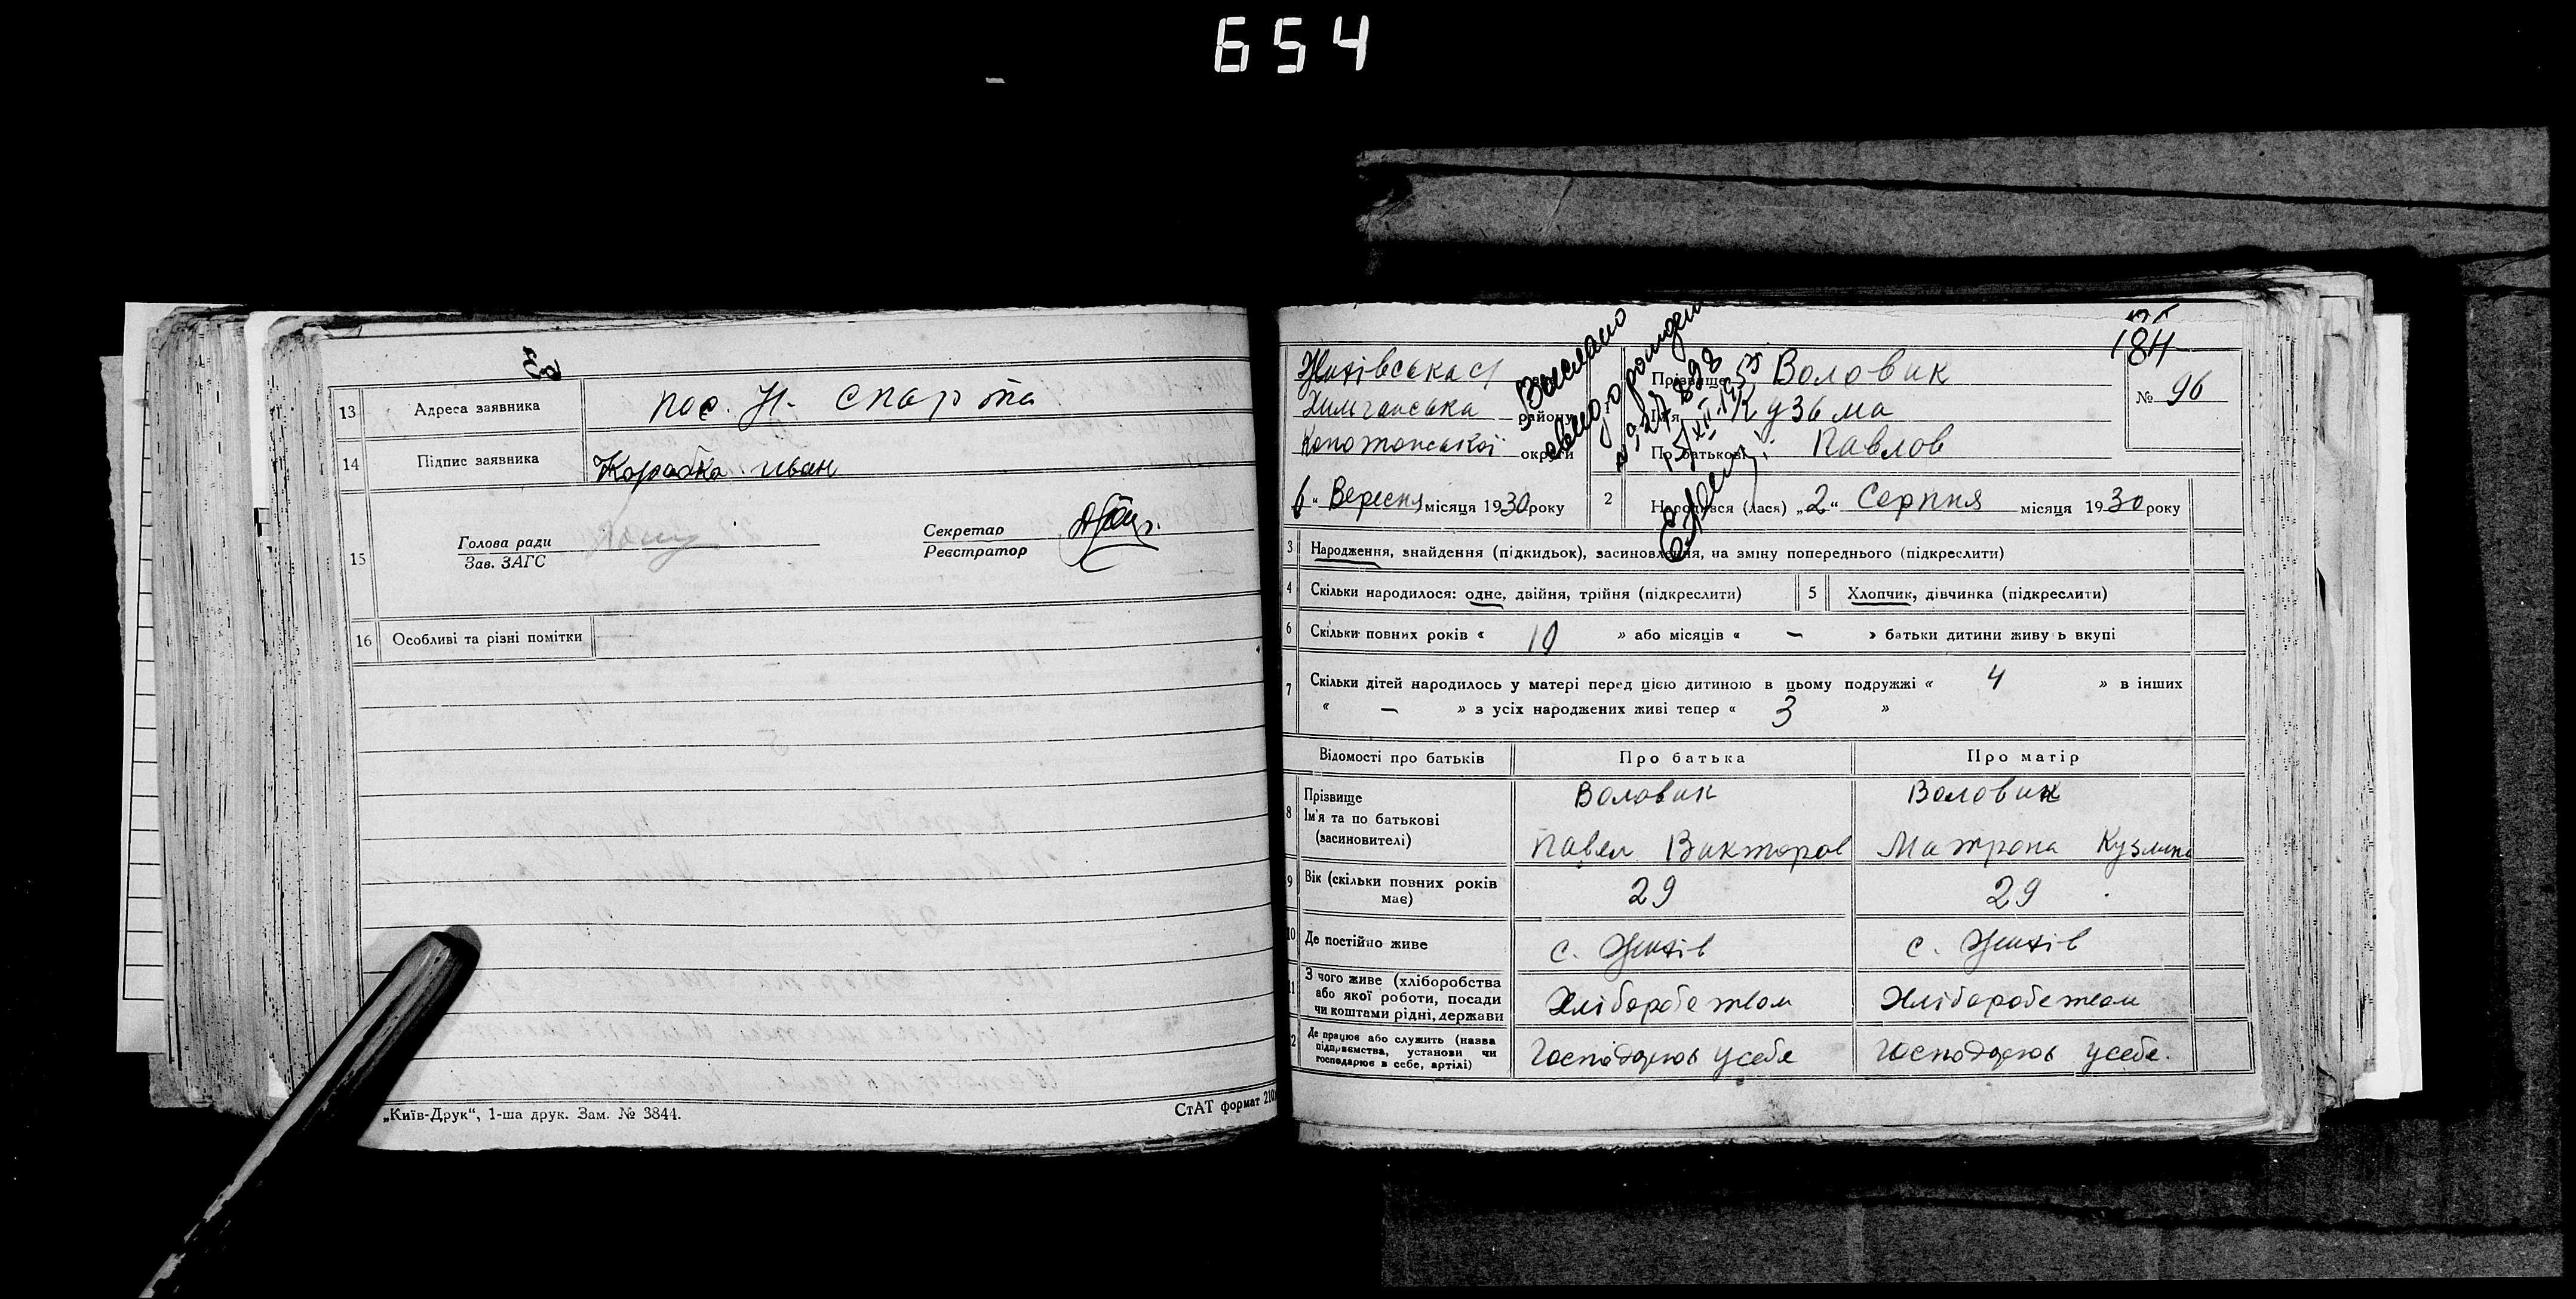 654
13 Адреса заявника пос. Н. Спарта
14 Підпис заявника Коробка иван
15 Голова ради Секретар
Зав. ЗАГС Реєстратор
16 Особливі та різні помітки
„Київ-Друк“, 1-ша друк. Зам. № 3844.
СтАТ формат 210
184
Выслано
898
Прізвище Воловик
№ 96
району
Ім'я Кузьма
Конотопської округи
По батькові Павлов
6 “ Вересня місяця 1930 року
2 Народився (лася) „2“ Серпня місяця 1930 року
3 Народження, знайдення (підкидьок), засиновлення, на зміну попереднього (підкреслити)
4 Скільки народилося: одне, двійня, трійня (підкреслити)
5 Хлопчик, дівчинка (підкреслити)
6 Скільки повних років « 10 » або місяців « — » батьки дитини живуь вкупі
7 Скільки дітей народилось у матері перед цією дитиною в цьому подружжі « 4 » в інших
« — » з усіх народжених живі тепер « 3 »
Відомості про батьків Про батька Про матір
8 Прізвище Воловик Воловик
Ім'я та по батькові
(засиновителі) Павел Викторов Матрона Кузмина
9 Вік (скільки повних років має) 29 29
10 Де постійно живе с. Жихів с. Жихів
11 З чого живе (хліборобства
або якої роботи, посади
чи коштами рідні, держави Хліборобством Хліборобством
12 Де працює або служить (назва
підприємства, установи чи
господарює в себе, артілі) Господарює у себе Господарює у себе.